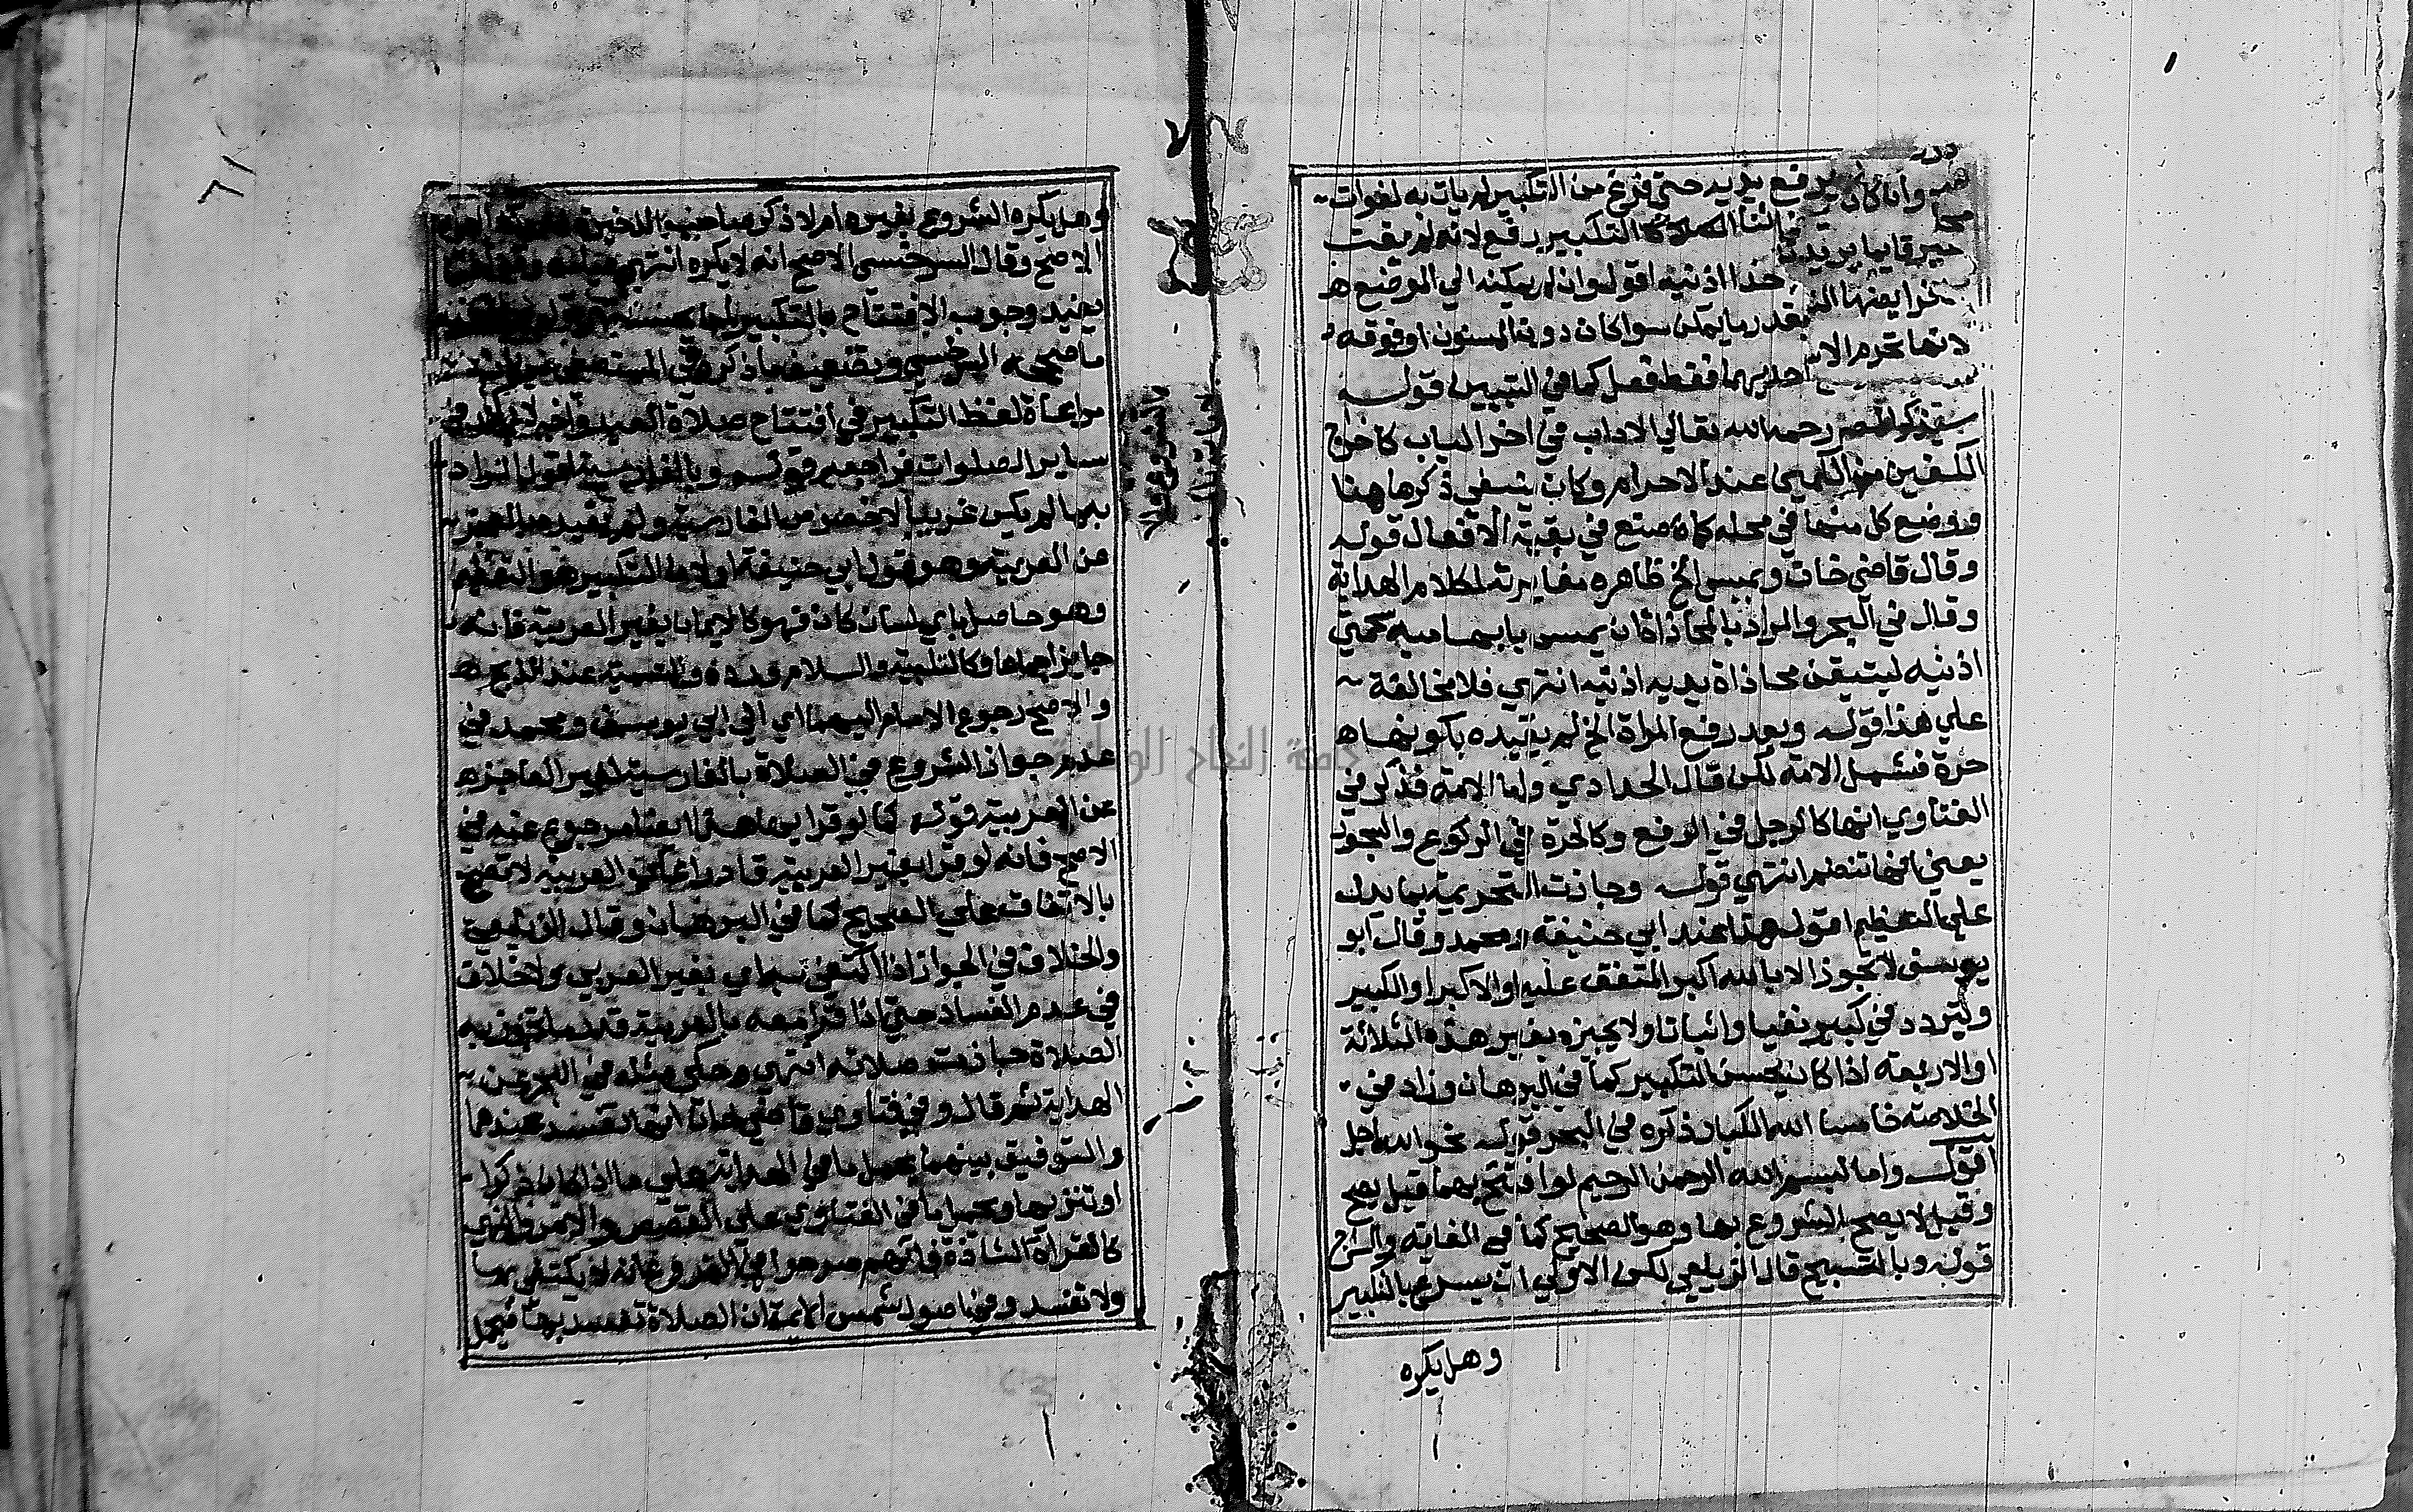 وان كان لم يرفع يديه حتى فرغ من التكبير لم يات به لفوات
التكبير يرفع لانه لم يفت
حذا اذنيه اقول وان لم يمكنه الى الموضع
بقدر ما يمكن سوا كان دون المسنون او فوقه
احديهما فقط فعل كما في التبيين قوله
سيذكر المصنف رحمه الله تعالى الاداب في اخر الباب كاخراج
الكفين من الكمين عند الاحرام وكان ينبغي ذكرها هنا
ووضع كل منها في محله كما صنع في بقية الافعال قوله
وقال قاضي خان ويمس الخ ظاهره مغايرته لكلام الهداية
وقال في البحر والمراد بالمحاذاة ان يمس بابهاميه شحمتي
اذنيه ليتيقن محاذاة يديه اذنيه انتهى فلا مخالفة
على هذا قوله وبعد رفع المراة الخ لم يقيده بكونها
حرة فشمل الامة لكن قال الحدادي واما الامة فذكر في
الفتاوي انها كالرجل في الرفع وكالحرة في الركوع والسجود
يعني انها تنضم انتهى قوله وجازت التحريمة بما يدل
على التعظيم اقول هذا عند ابي حنيفة ومحمد وقال ابو
يوسف لا تجوز الا بالله اكبر المتفق عليه او الاكبر او الكبير
وتردد في كبير نفيا واثباتا ولا يجيزه بغير هذه الثلاثة
او الاربعة اذا كان يحسن التكبير كما في البرهان وزاد في
الخلاصة خامسا الله الكبار ذكره في البحر قوله نحو الله اجل
اقول واما بسم الله الرحمن الرحيم لو افتتح بهما قيل يصح
وقيل لا يصح الشروع بها وهو الصحيح كما في الغاية والسراج
قوله وبالتسبيح قال الزيلعي لكن الاولى ان يشرع بالتكبير
وهل يكره
٦١
وهل يكره الشروع بغيره ام لا ذكر صاحب الذخيرة
الاصح وقال السرخسي الاصح انه لا يكره انتهى
يفيد وجوب الافتتاح بالتكبير
ما صححه السرخسي وبتضعيف ما ذكره في المستصفى
مراعاة لفظ التكبير في افتتاح صلاة العيد واجب
ساير الصلوات فراجعه قوله وبالفارسية اقول المراد
بها ما لم يكن عربيا لا خصوص الفارسية ولم يقيد بالعجز
عن العربية وهو قول ابي حنيفة اولا لان التكبير هو التعظيم
وهو حاصل باي لسان كان فهو كالايمان بغير العربية فانه
جايز اجماعا وكالتلبية والسلام ورده والتسمية عند الذبح
والاصح رجوع الامام اليهما اي الى ابي يوسف ومحمد في
عدم جواز الشروع في الصلاة بالفارسية لغير العاجز
عن العربية قوله كما لو قرا بها هذا ايضا مرجوع عنه في
الاصح فانه لو قرا بغير العربية قادرا على العربية لا تصح
بالاتفاق على الصحيح كما في البرهان وقال الزيلعي
والخلاف في الجواز اذا اكتفى به اي بغير العربي ولا خلاف
في عدم الفساد حتى اذا قرا معه بالعربية قدر ما تجوز به
الصلاة جازت صلاته انتهى وحكى مثله في البحر عن
الهداية ثم قال وفي فتاوي قاضي خان انها تفسد عندهما
والتوفيق بينهما بحمل ما في الهداية على ما اذا كان ذكرا
او تنزيها وبحمل ما في الفتاوي على القصص والامر والنهي
كالقراة الشاذة فانهم صرحوا في الفروع انه لا يكتفى بها
ولا تفسد وفي اصول شمس الايمة ان الصلاة تفسد بها فيحمل